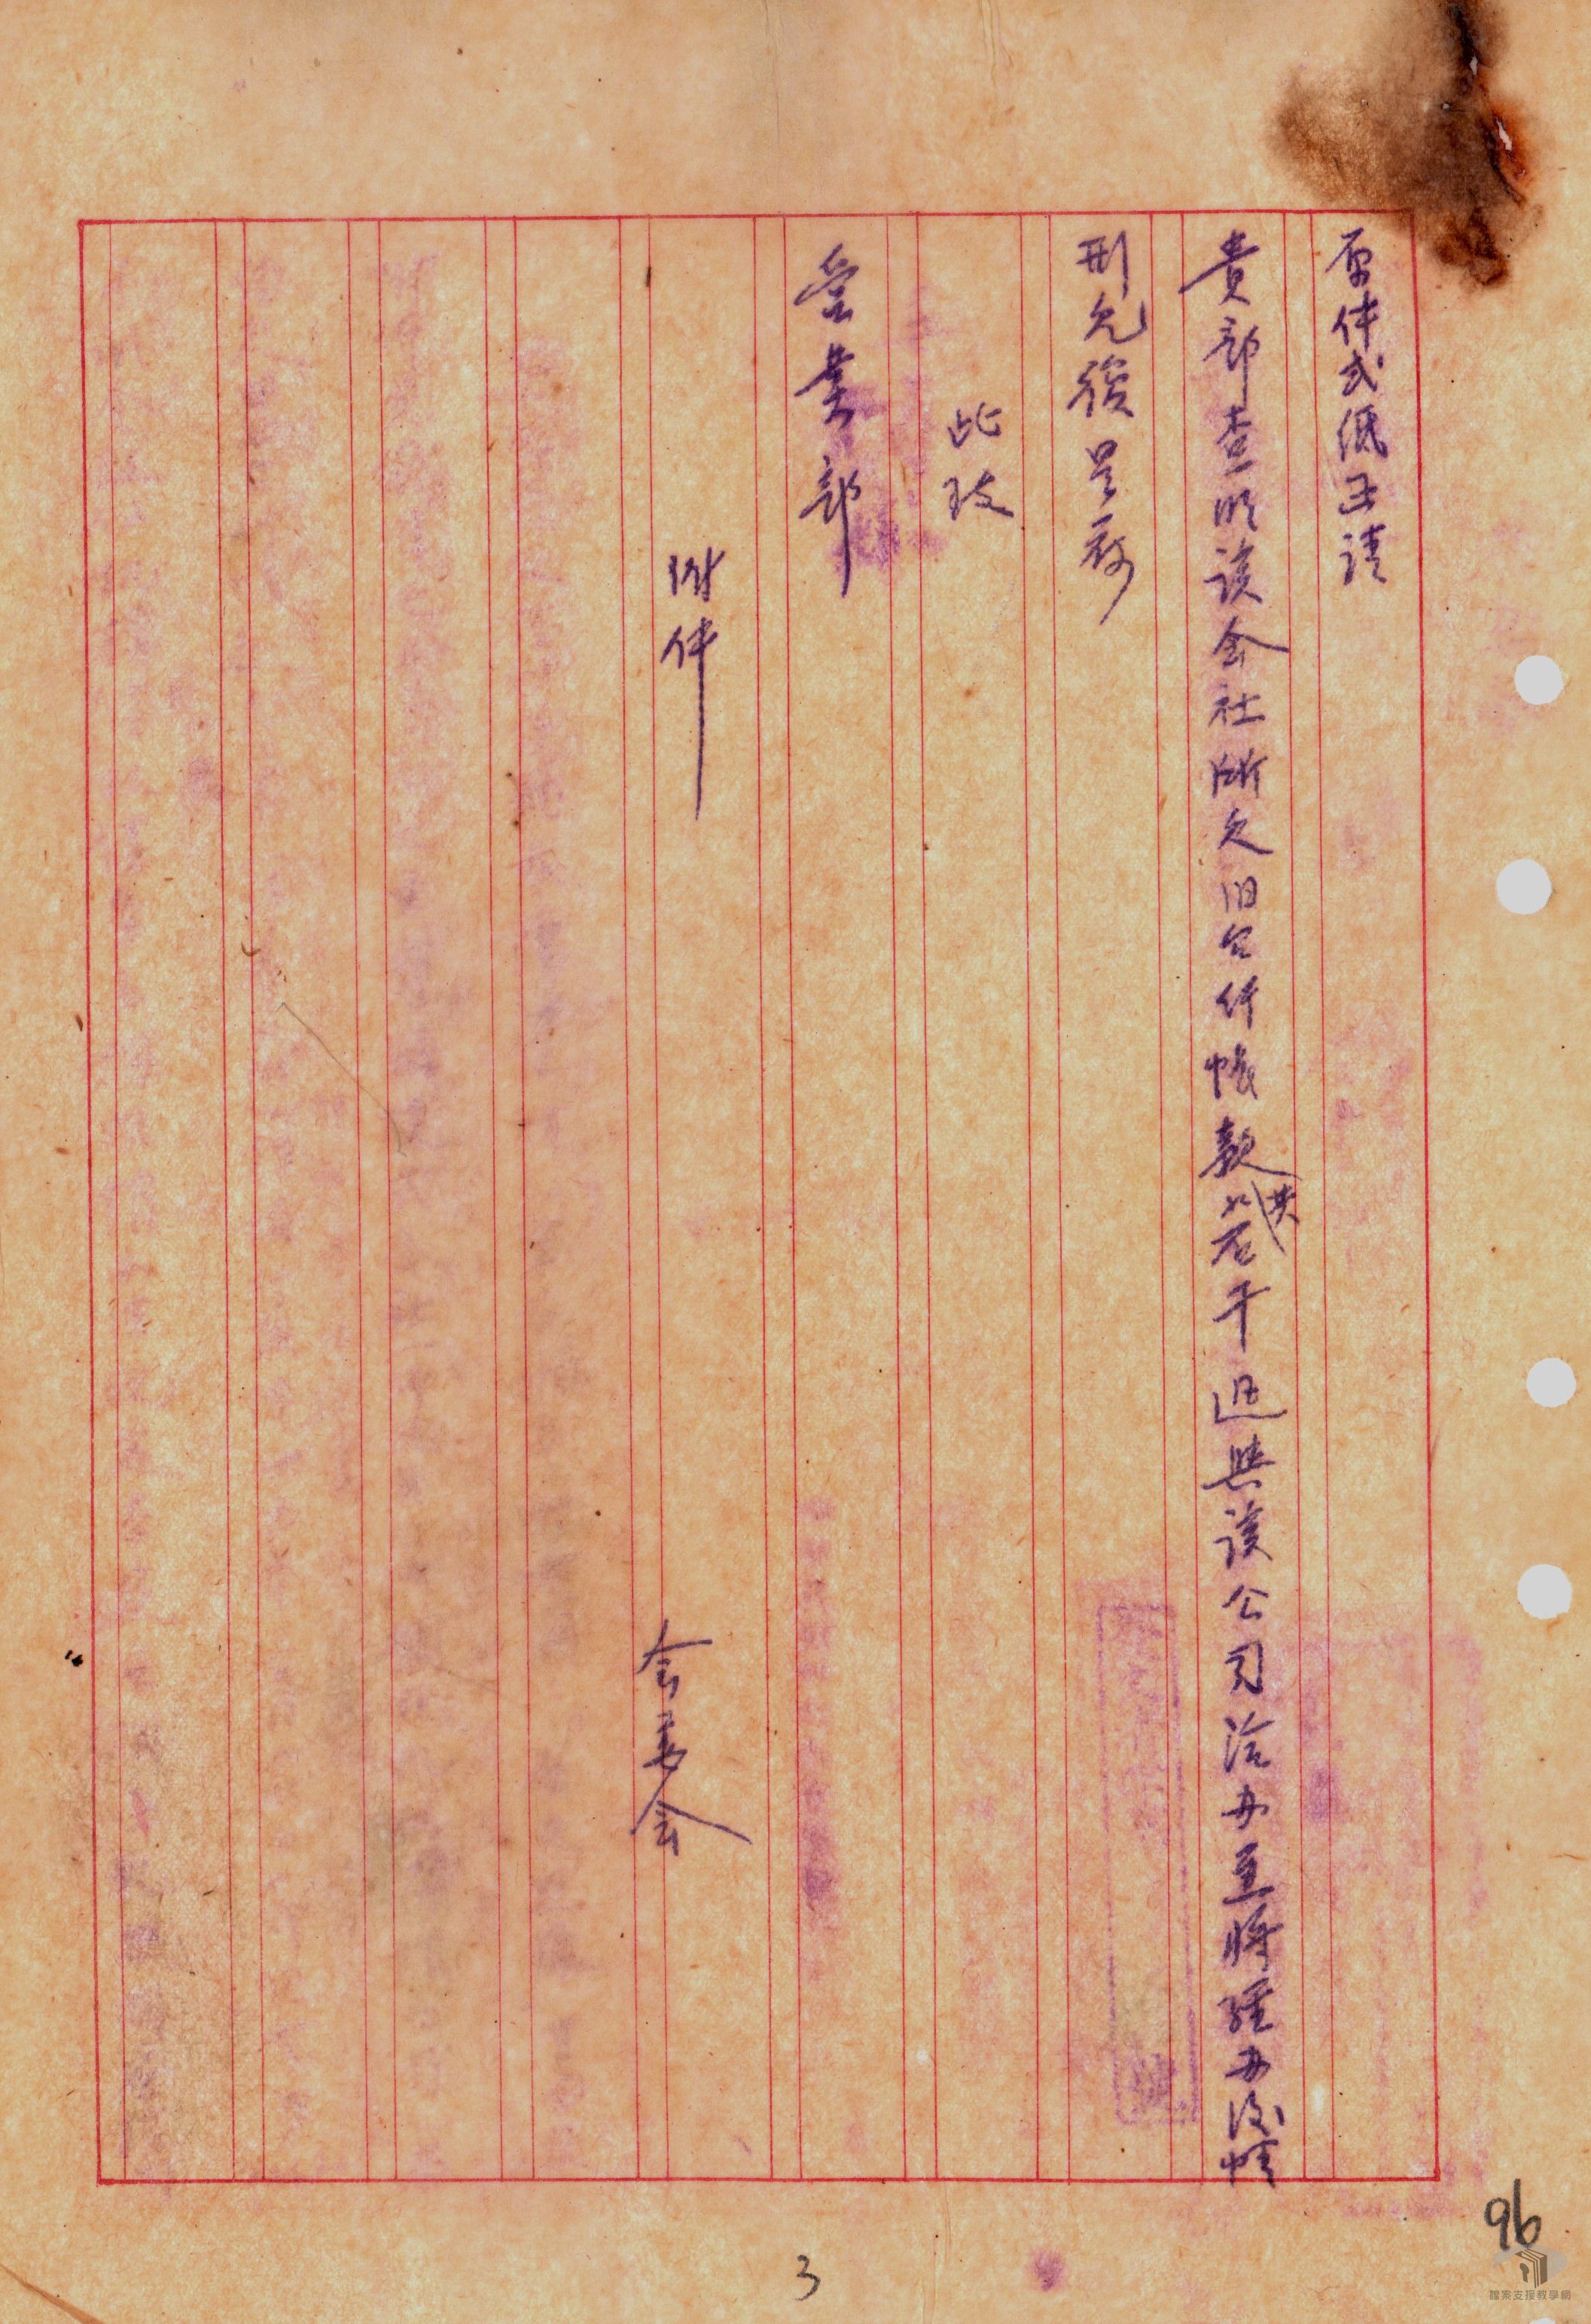 原件式紙函請
貴部查明該会社所欠旧台行帳款共若干迅與該公司洽办並將經办後情
形見復是荷
此致
營業部
附件
会委会
3
96
檔案支援教學網